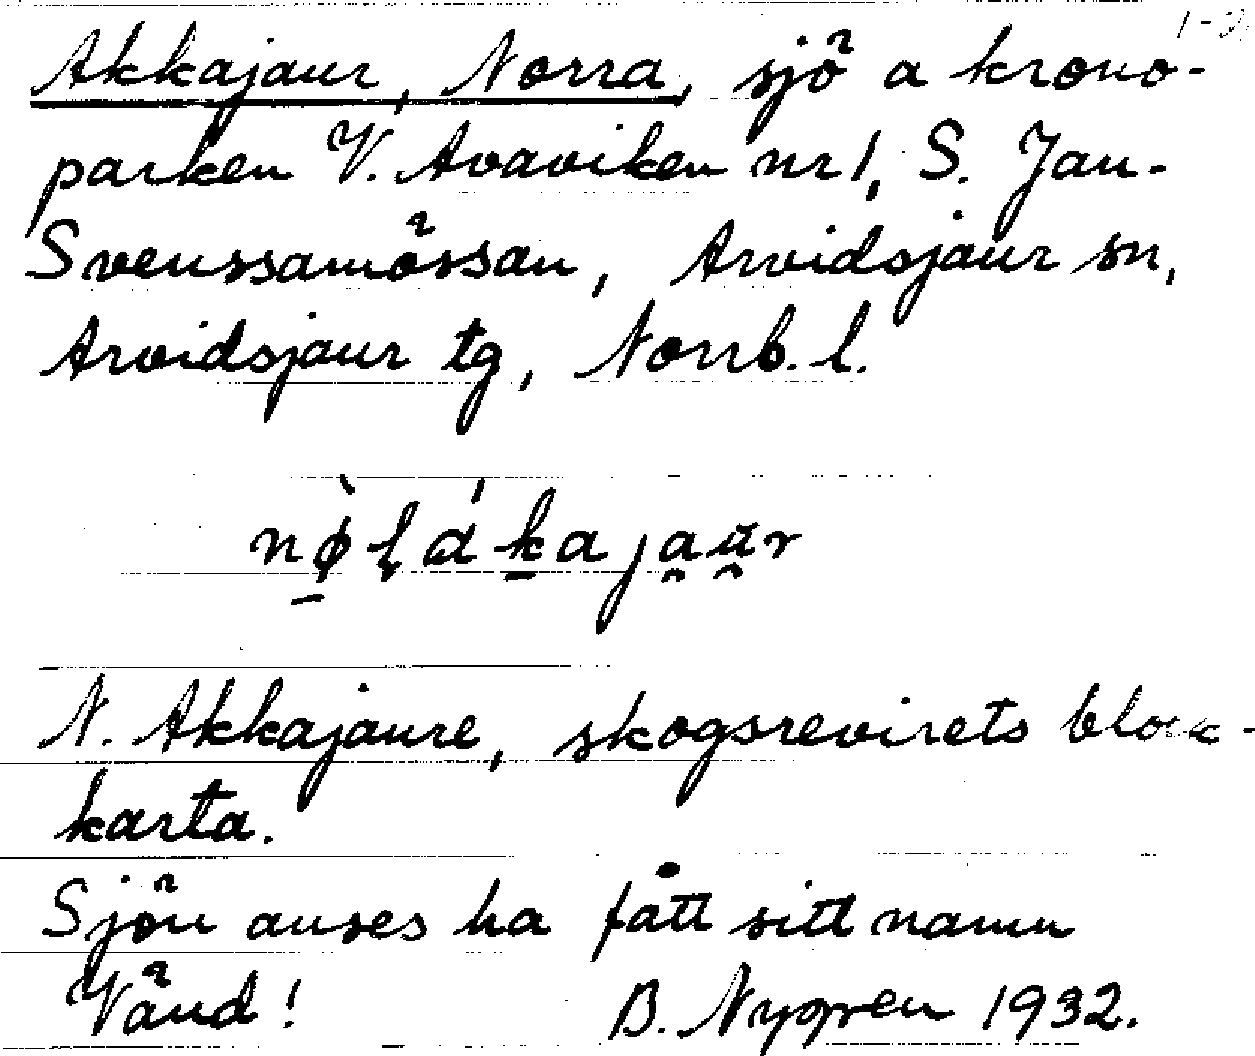 Akkajaur, Norra, sjö a krono-
parken V. Avaviken nr 1, S. Jan-
Svenssamössan, Arvidsjaur sn,
Arvidsjaur tg, Norrb. l.
N. Akkajaure, skogsrevirets block-
karta.
Sjön anses ha fått sitt namn
Vänd! B. Nygren 1932.